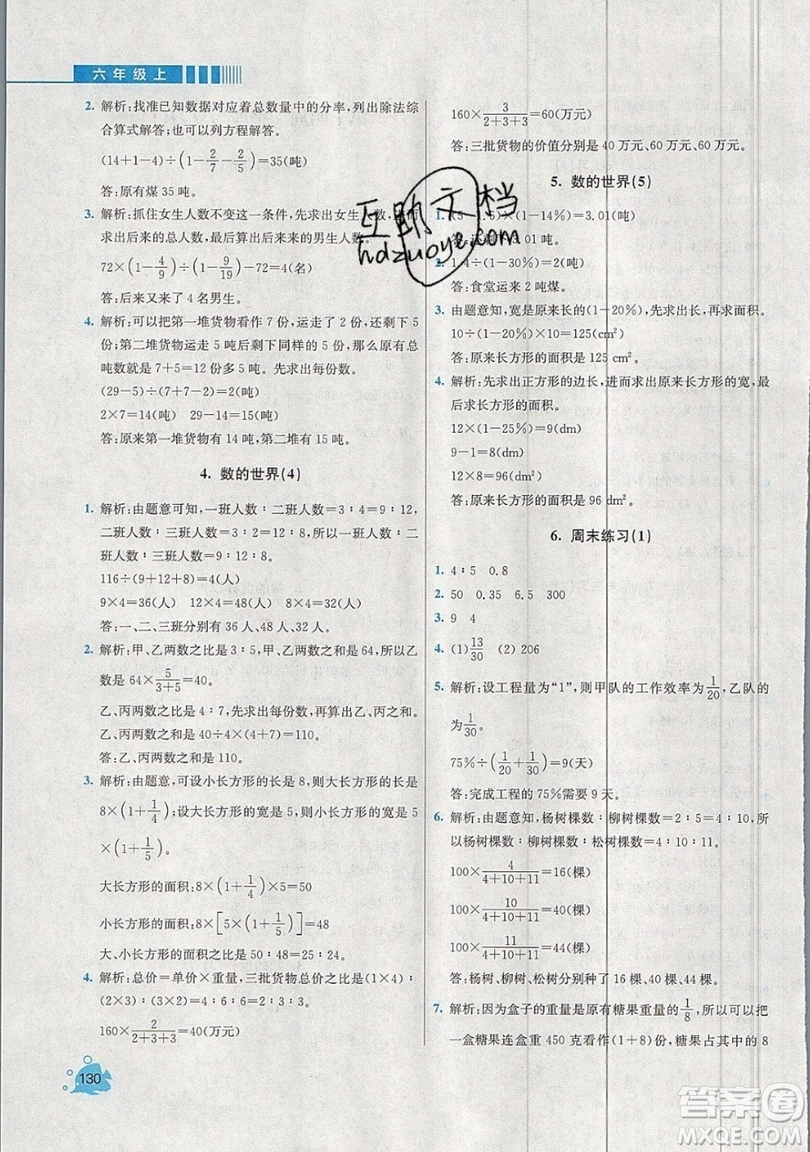 六年级上
2. 解析:找准已知数据对应着总数量中的分率,列出除法综
合算式解答;也可以列方程解答。
(14+1-4)÷(1-2/7-2/5)=35(吨)
答:原有煤 35 吨。
3. 解析:抓住女生人数不变这一条件,先求出女生人数,
求出后来的总人数,最后算出后来来的男生人数。
72×(1-4/9)÷(1-9/19)-72=4(名)
答:后来又来了 4 名男生。
4. 解析:可以把第一堆货物看作 7 份,运走了 2 份,还剩 5
份;第二堆货物运走 5 吨后剩下同样的 5 份,前后存在总
吨数就是 7+5=12 份多 5 吨。先求出每份数。
(29-5)÷(7+7-2)=2(吨)
2×7=14(吨) 29-14=15(吨)
答:原来第一堆货物有 14 吨,第二堆有 15 吨。
4. 数的世界(4)
1. 解析:由题意可知,一班人数∶二班人数=3∶4=9∶12,
二班人数∶三班人数=3∶2=12∶8,所以一班人数∶二
班人数∶三班人数=9∶12∶8。
116÷(9+12+8)=4(人)
9×4=36(人) 12×4=48(人) 8×4=32(人)
答:一、二、三班分别有 36 人、48 人、32 人。
2. 解析:甲、乙两数之比是 3∶5,甲、乙两数之和是 64,所以乙
数是 64×5/(3+5)=40。
乙、丙两数之比是 4∶7,先求出每份数,再算出乙、丙两
数之和为 40÷4×(7+4)=110。
答:乙、丙两数之和是 110。
3. 解析:由题意,可设小长方形的长是 8,则大长方形的长是
8×(1+1/4);设大长方形的宽是 5,则小长方形的宽是 5
×(1+1/5)。
大长方形的面积:8×(1+1/4)×5=50
小长方形的面积:8×[5×(1+1/5)]=48
大、小长方形的面积之比是 50∶48=25∶24。
4. 解析:总价=单价×重量,三批货物的总价之比是(1×4)∶
(2×3)∶(3×2)=2∶3∶3。
160×2/(2+3+3)=40(万元)
160×3/(2+3+3)=60(万元)
答:三批货物的价值分别是 40 万元、60 万元、60 万元。
5. 数的世界(5)
1. ×(1-14%)=3.01(吨)
答:
2. 1.4÷(1-30%)=2(吨)
答:食堂运来 2 吨煤。
3. 由题意知,宽是原来长的(1-20%),先求出长,再求面积。
10÷(1-20%)×10=125(cm²)
答:原来长方形的面积是 125 cm²。
4. 解析:先求出正方形的边长,进而求出原来长方形的宽,最
后求长方形的面积。
12×(1-25%)=9(dm)
9-1=8(dm)
12×8=96(dm²)
答:原来长方形的面积是 96 dm²。
6. 周末练习(1)
1. 4∶5 0.8
2. 50 0.35 6.5 300
3. 9 4
4. (1)13/30 (2) 206
5. 解析:设工程量为“1”,则甲队的工作效率为1/20,乙队的
为1/30。
75%÷(1/20+1/30)=9(天)
答:完成工程的 75%需要 9 天。
6. 解析:由题意知,杨树棵数∶柳树棵数=2∶5=4∶10,所
以杨树棵数∶柳树棵数∶松树棵数=4∶10∶11。
100×4/(4+10+11)=16(棵)
100×10/(4+10+11)=40(棵)
100×11/(4+10+11)=44(棵)
答:杨树、柳树、松树分别种了 16 棵、40 棵、44 棵。
7. 解析:因为盒子的重量是原有糖果重量的1/8,所以可以把
一盒糖果连盒重 450 克看作(1+8)份,糖果占其中的 8
130
互助文档
hdzuoye.com
答案圈
MXQE.COM